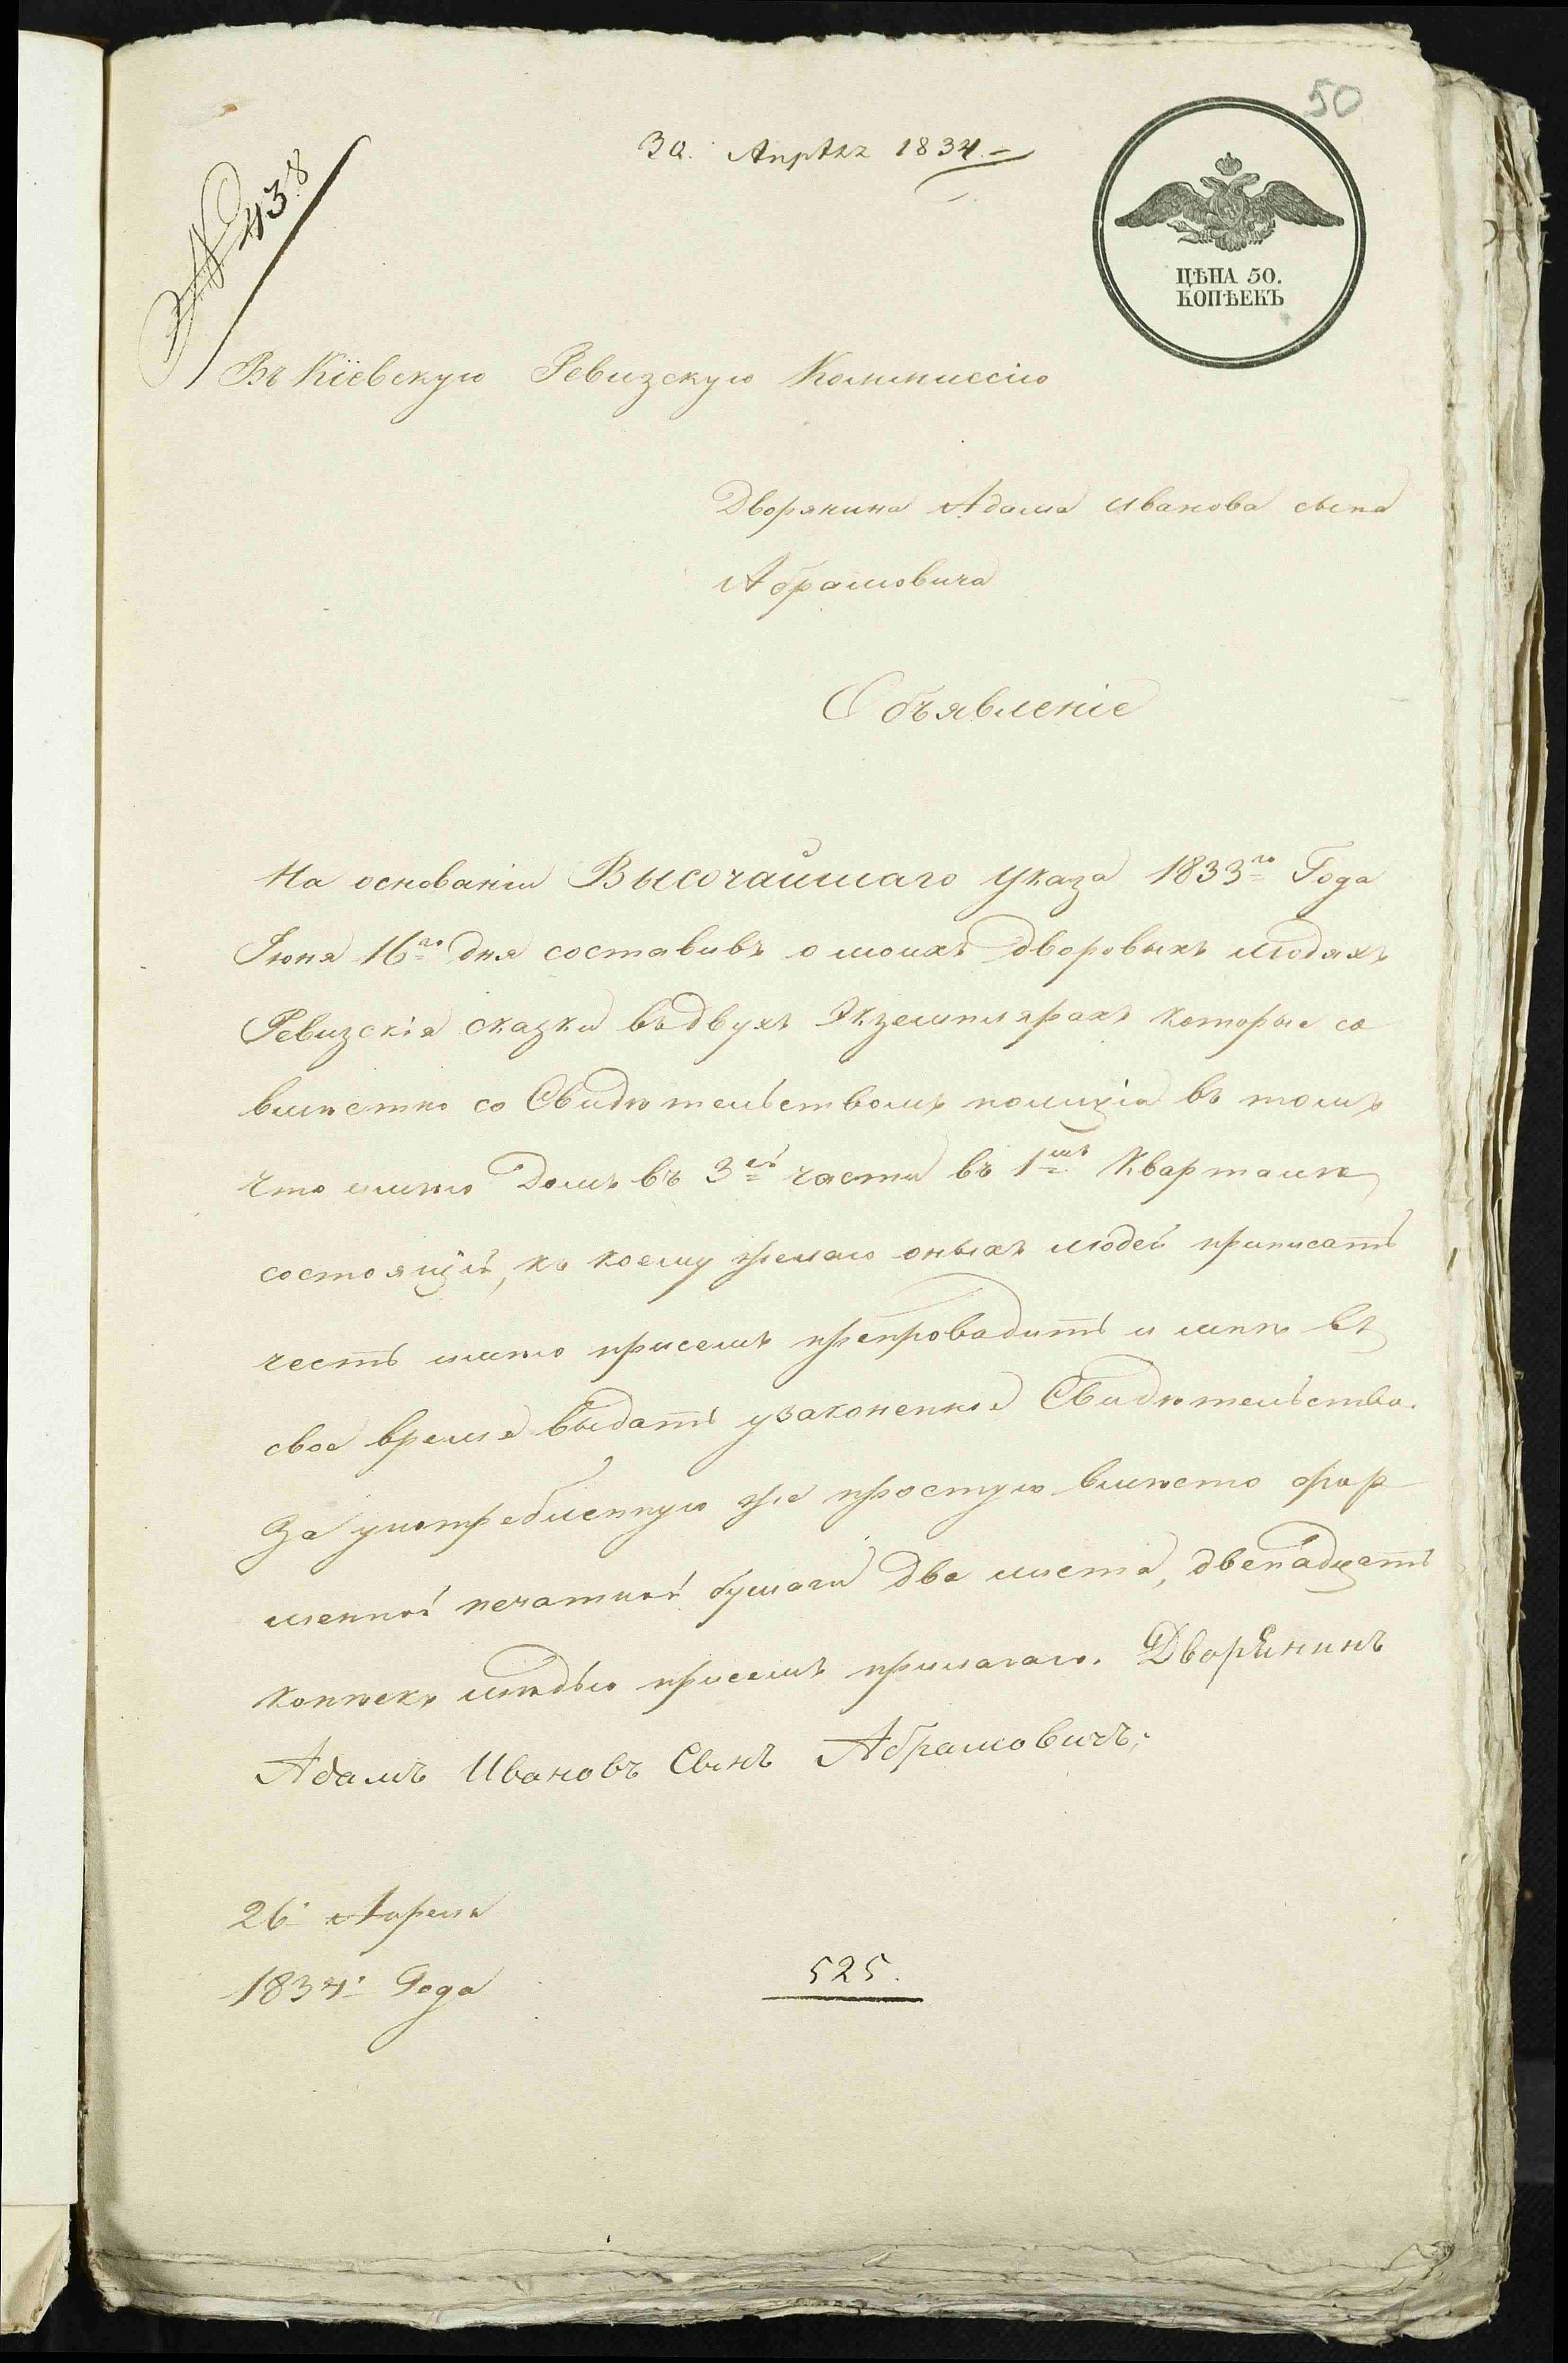 50
30. Апрѣл 1834.
№ 438
ЦѢНА 50.
КОПѢЕКЪ
Въ Кіевскую Ревизскую Коммиссію
Дворянина Адама Иванова сына
Абрамовича
Объявленіе
На основаніи Высочайшаго указа 1833го Года
Іюня 16го дня составивъ о моихъ дворовыхъ людяхъ
Ревизскія сказки въ двухъ Экземплярахъ которые со
вмѣстно со Свидѣтельствомъ полиціи въ томъ
что имѣю Домъ въ 3ей части въ 1мъ Кварталѣ
состоящій, къ коему желаю оныхъ людей приписать
честь имѣю присемъ препровадить и мнѣ въ
свое время выдать узаконенное Свидѣтельства.
За употребленную же простую вмѣсто фор
менной печатной бумаги два листа, двенадцать
копѣекъ мѣдью присемъ прилагаю. Дворенинъ
Адамъ Ивановъ Сынъ Абрамовичъ.
26 Апреля
1834 Года
525.